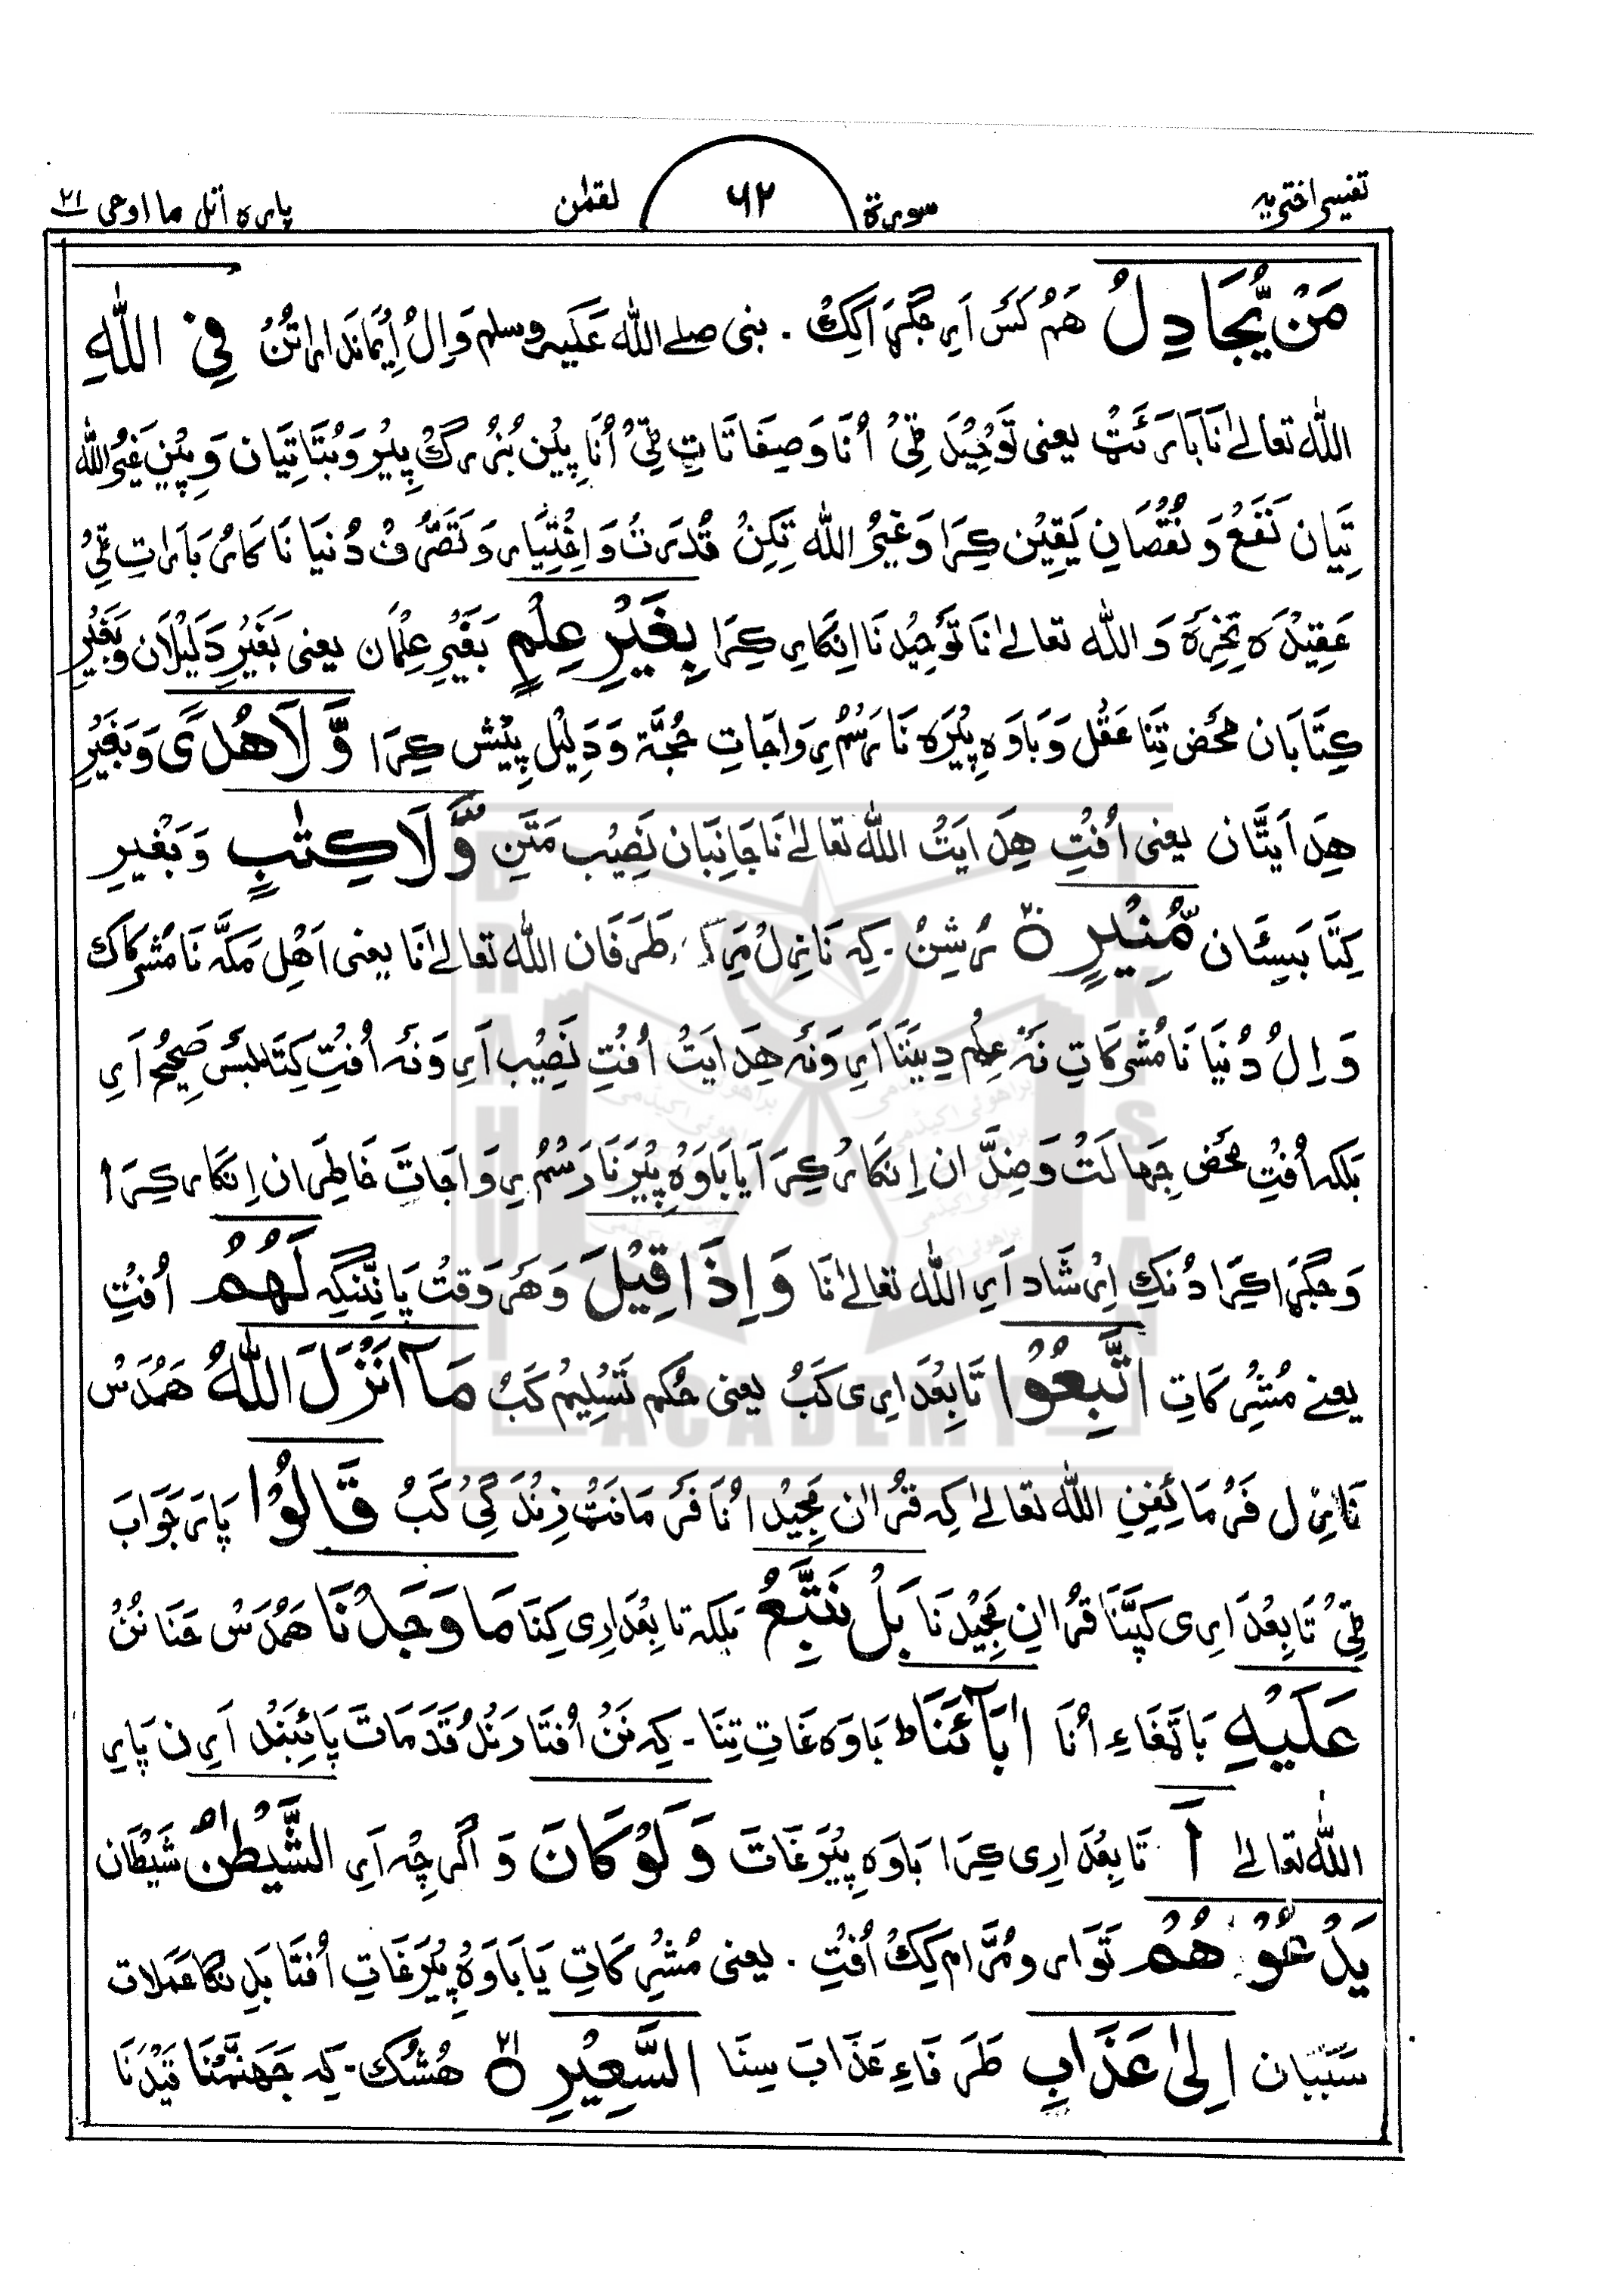 تفسیر اختریہ سورۃ ٦٢ لقمٰن پارہ اُتل ما اوحی ٢١
مَنْ يُّجَادِلُ هَمُ كَسَ اَرِ جگہڑا کِکْ . نبی صلے اللہ عَلَیہ وسلم وَ اِلُ اِیْماندا اراتُنْ فِي اللّٰهِ
اللہ تعالےٰ نَا بَارَئَٹ یعنی تَوْحِیْد ٹِیْ اُنَا وَ صِفَاتَاتِ ٹِیْ اُنَا پِیْن بُزُرگْ پِیْر وَ بُتَاتِیَان وَ پِیْن غَیْرُ اللہ
تِیَان نَفَعْ وَ نُقْصَانِ یَقِیْن کِرَا وَ غَیْرُ اللہ تِکِنْ قُدَرتْ وَ اِخْتِیَار وَ تَصَرُّفْ دُنیَا نَا کَارُ بَارَاتِ ٹِیْ
عَقِیْدَہ تِخِرَہ وَ اللہ تعالےٰ نَا تَوْحِیْد نَا اِنکَارِ کِرَا بِغَيْرِ عِلْمٍ بَغَیْرِ عِلْمَان یعنی بَغَیْرِ دَلِیْلَان وَ بَغَیْرِ
کِتَابَان مَحَض تِنَا عَقْل وَ بَاوَہ پِیْرَہ نَا رَسْمُ رِوَاجَاتِ حُجَّة وَ دَلِیْل پِیْش کِرَا وَّلَا هُدًى وَ بَغَیْرِ
هِدَایتَّان یعنی اُفتِ هِدَایَتْ اللہ تعالےٰ نَا جَانِبَان نَصِیْب مَتَنِ وَّلَا كِتٰبٍ وَ بَغَیْرِ
کِتَابَسِئَان مُّنِيْرٍ ۝ رُشِنْ . کِہ نَازِلْ مَرِ طَرَفَان اللہ تعالےٰ نَا یعنی اَهْلِ مَکَّہ نَا مُشرکَاک
وَ اِلُ دُنْیَا نَا مُشرکَاتِ نَہ عِلْم دِیننَا اَرِ وَ نَہ هِدَایَتْ اُفتِ نَصِیْب اَرِ وَ نَہ اُفتِ کِتَابَسْ صَحِیْح اَرِ
بَلکہ اُفتِ مَحَض جِهالَتْ وَ ضِدَّ ان اِنکَار کِرَا یَا بَاوَہ پِیْرَنَا رَسْمُ رِوَاجَاتَ خَاطِرَان اِنکَار کِرَا
وَ جگہڑا کِرَا دُنکِ اِرْشَاد اَرِ اللہ تعالےٰ نَا وَاِذَا قِيْلَ وَ هَر وَقتْ پَانِنَّگِہ لَهُمُ اُفتِ
یعنے مُشرِکَاتِ اتَّبِعُوْا تَابِعْدَارِی کَبُ یعنی حُکم تَسْلِیْم کَبُ مَآ اَنْزَلَ اللّٰهُ هَمُدَسْ
نَازِل فَرْمَائِفِنِ اللہ تعالےٰ کِہ قُرْاٰن مَجِیْد اُنَا فَرْمَافَتْ زِنْدَگِی کَبُ قَالُوْا پَارَ جَوَابَ
ٹِیْ تَابِعْدَارِی کَپَّنَا قُرْاٰن مَجِیْد نَا بَلْ نَتَّبِعُ بَلکہ تابِعْدَارِی کِنَا مَا وَجَدْنَا هَمُدَسْ خَنَا نُنْ
عَلَيْهِ بَاتْغَاءِ اُنَا اٰبَآئَنَا ط بَاوَہ غَاتِ تِنَا . کِہ نَنْ اُفتَا دَنلْ قَدَمَاتَ پَائِبَنْد اَرِن پَارِ
اللہ تعالےٰ اَ تَابِعْدَارِی کِرَا بَاوَہ پِیْرَغَاتَ وَلَوْ كَانَ وَ اَگرچِہ اَرِ الشَّيْطٰنُ شَیْطَان
يَدْعُوْهُمْ تَوَار و مُرَّام کِکْ اُفتِ . یعنی مُشرِکَاتِ یَا بَاوَہ پِیْرَغَاتِ اُفتَا بَدِنگا عَملات
سَبَبَان اِلٰى عَذَابِ طَرَفَاءِ عَذَابَ سِنَا السَّعِيْرِ ۝ هُشُک . کِہ جَهنَّمْنَا قَیْدنَا